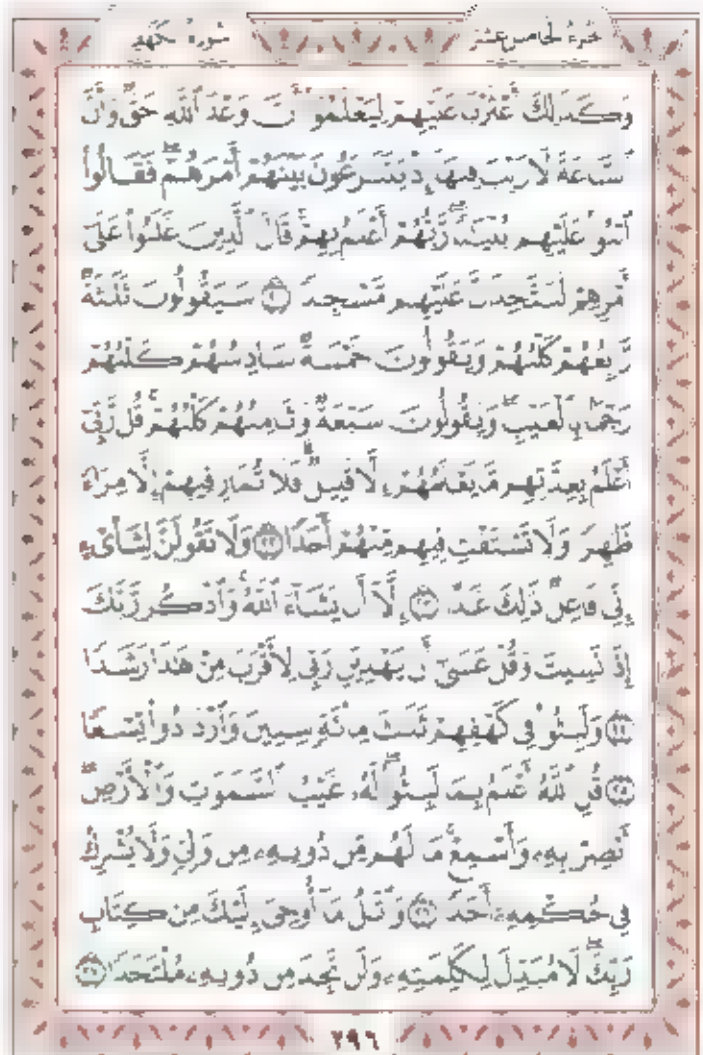 سورة الكهف الجزء الخامس عشر
وَكَذَٰلِكَ أَعْثَرْنَا عَلَيْهِمْ لِيَعْلَمُوٓا۟ أَنَّ وَعْدَ ٱللَّهِ حَقٌّ وَأَنَّ
ٱلسَّاعَةَ لَا رَيْبَ فِيهَآ إِذْ يَتَنَٰزَعُونَ بَيْنَهُمْ أَمْرَهُمْ ۖ فَقَالُوا۟
ٱبْنُوا۟ عَلَيْهِم بُنْيَٰنًا ۖ رَّبُّهُمْ أَعْلَمُ بِهِمْ ۚ قَالَ ٱلَّذِينَ غَلَبُوا۟ عَلَىٰٓ
أَمْرِهِمْ لَنَتَّخِذَنَّ عَلَيْهِم مَّسْجِدًا ﴿٢١﴾ سَيَقُولُونَ ثَلَٰثَةٌ
رَّابِعُهُمْ كَلْبُهُمْ وَيَقُولُونَ خَمْسَةٌ سَادِسُهُمْ كَلْبُهُمْ
رَجْمًۢا بِٱلْغَيْبِ ۖ وَيَقُولُونَ سَبْعَةٌ وَثَامِنُهُمْ كَلْبُهُمْ ۚ قُل رَّبِّىٓ
أَعْلَمُ بِعِدَّتِهِم مَّا يَعْلَمُهُمْ إِلَّا قَلِيلٌ ۗ فَلَا تُمَارِ فِيهِمْ إِلَّا مِرَآءً
ظَٰهِرًا وَلَا تَسْتَفْتِ فِيهِم مِّنْهُمْ أَحَدًا ﴿٢٢﴾ وَلَا تَقُولَنَّ لِشَا۟ىْءٍ
إِنِّى فَاعِلٌ ذَٰلِكَ غَدًا ﴿٢٣﴾ إِلَّآ أَن يَشَآءَ ٱللَّهُ ۚ وَٱذْكُر رَّبَّكَ
إِذَا نَسِيتَ وَقُلْ عَسَىٰٓ أَن يَهْدِيَنِ رَبِّى لِأَقْرَبَ مِنْ هَٰذَا رَشَدًا
﴿٢٤﴾ وَلَبِثُوا۟ فِى كَهْفِهِمْ ثَلَٰثَ مِا۟ئَةٍ سِنِينَ وَٱزْدَادُوا۟ تِسْعًا
﴿٢٥﴾ قُلِ ٱللَّهُ أَعْلَمُ بِمَا لَبِثُوا۟ ۖ لَهُۥ غَيْبُ ٱلسَّمَٰوَٰتِ وَٱلْأَرْضِ ۖ
أَبْصِرْ بِهِۦ وَأَسْمِعْ ۚ مَا لَهُم مِّن دُونِهِۦ مِن وَلِىٍّ وَلَا يُشْرِكُ
فِى حُكْمِهِۦٓ أَحَدًا ﴿٢٦﴾ وَٱتْلُ مَآ أُوحِىَ إِلَيْكَ مِن كِتَابِ
رَبِّكَ ۖ لَا مُبَدِّلَ لِكَلِمَٰتِهِۦ وَلَن تَجِدَ مِن دُونِهِۦ مُلْتَحَدًا ﴿٢٧﴾
٢٩٦